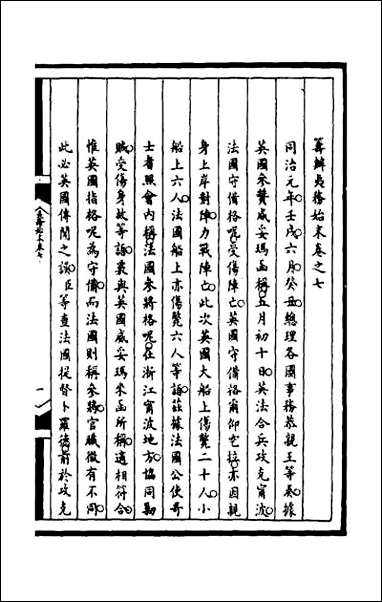 籌辦夷務始末卷之七
同治元年壬戌六月癸丑總理各國事務恭親王等奏據
英國參贊威妥瑪函稱五月初十日英法合兵攻克甯波
法國守備格呢受傷陣亡英國守備格爾仰乞拉亦因親
身上岸對陣力戰陣亡此次英國大船上傷斃二十人小
船上六人法國船上亦傷斃六人等語茲據法國公使哥
士耆照會內稱法國參將格呢在浙江甯波地方協同勦
賊受傷身故等語核與英國威妥瑪來函所稱適相符合
惟英國指格呢為守備而法國則稱參將官職微有不同
此必英國傳聞之誤臣等查法國提督卜羅德前於攻克